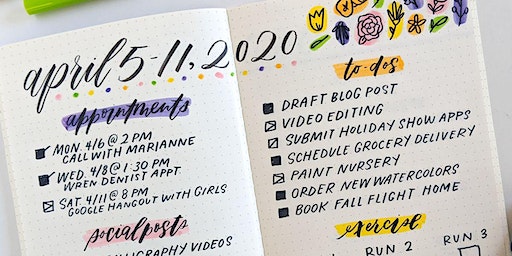 april 5-11, 2020
appointments
MON. 4/6 @ 2 PM
CALL WITH MARIANNE
WED. 4/8 @ 1:30 PM
WREN DENTIST APPT.
SAT. 4/11 @ 8 PM
GOOGLE HANGOUT WITH GIRLS
social posts
CALLIGRAPHY VIDEOS
to-dos
DRAFT BLOG POST
VIDEO EDITING
SUBMIT HOLIDAY SHOW APPS
SCHEDULE GROCERY DELIVERY
PAINT NURSERY
ORDER NEW WATERCOLORS
BOOK FALL FLIGHT HOME
exercise
RUN 2
RUN 3